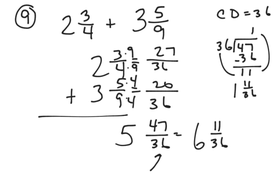 ⑨ 2 3/4 + 3 5/9
CD = 36
2 3·9/4·9 27/36
+ 3 5·4/9·4 20/36
5 47/36 = 6 11/36
1
36)47
-36
11
1 11/36